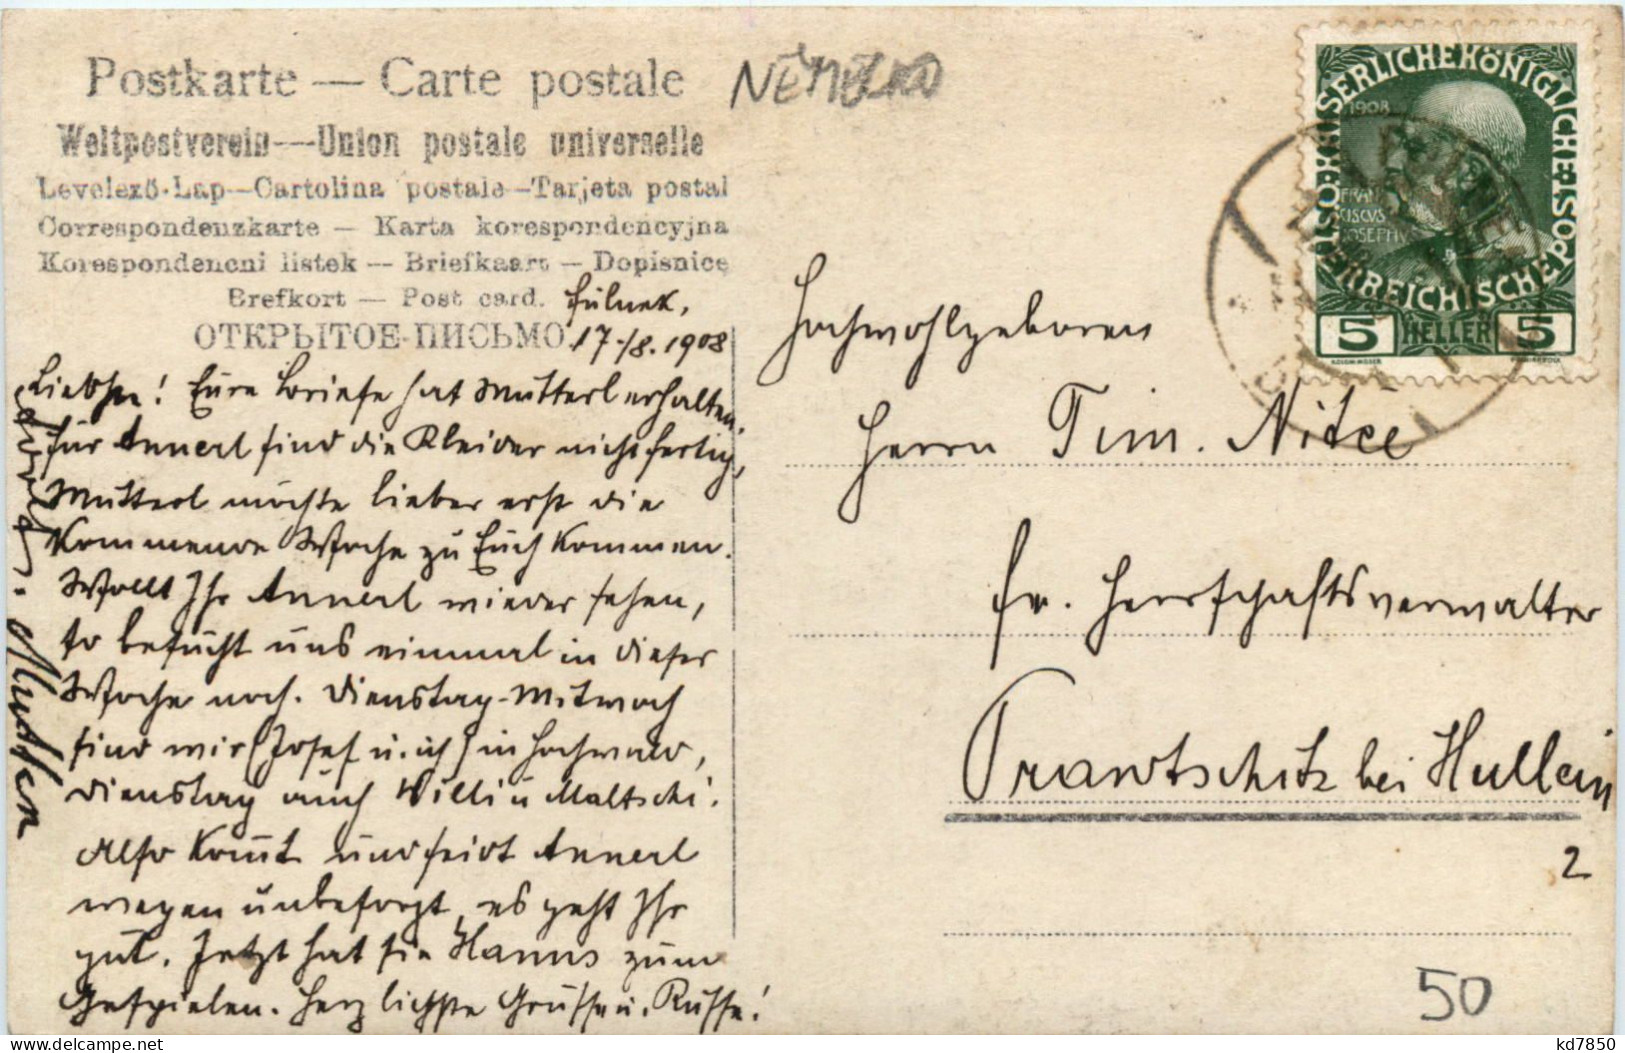 Postkarte — Carte postale
NĚMECKO
Weltpostverein — Union postale universelle
Levelező-Lap — Cartolina postale — Tarjeta postal
Correspondenzkarte — Karta korespondencyjna
Korespondencni listek — Briefkaart — Dopisnice
Brefkort — Post card.
ОТКРЫТОЕ-ПИСЬМО
Fulnek,
17./8. 1908
Liebste! Eure Briefe hat Mutterl erhalten.
für Annerl sind die Kleider nicht fertig,
Mutterl möchte lieber erst die
kommende Woche zu Euch kommen.
Wollt Ihr Annerl wieder sehen,
so besucht uns einmal in dieser
Woche noch. Dienstag-Mittwoch
sind wir (Josef u. ich) in Hochwald,
Dienstag auch Willi u Maltschi.
Also kommt und seid Annerl
wegen unbesorgt, es geht Ihr
gut. Jetzt hat sie Hanns zum
Gespielen. Herzlichste Grüsse u. Küsse!
KAISERLICHEKÖNIGLICHE
ÖSTERREICHISCHEPOST
1908
FRAN
CISCUS
JOSEPHVS
5 HELLER 5
Hochwohlgeboren
Herrn Tim. Nitče
fr. Herrschaftsverwalter
Prawtschitz bei Hullein
2
50
kd7850